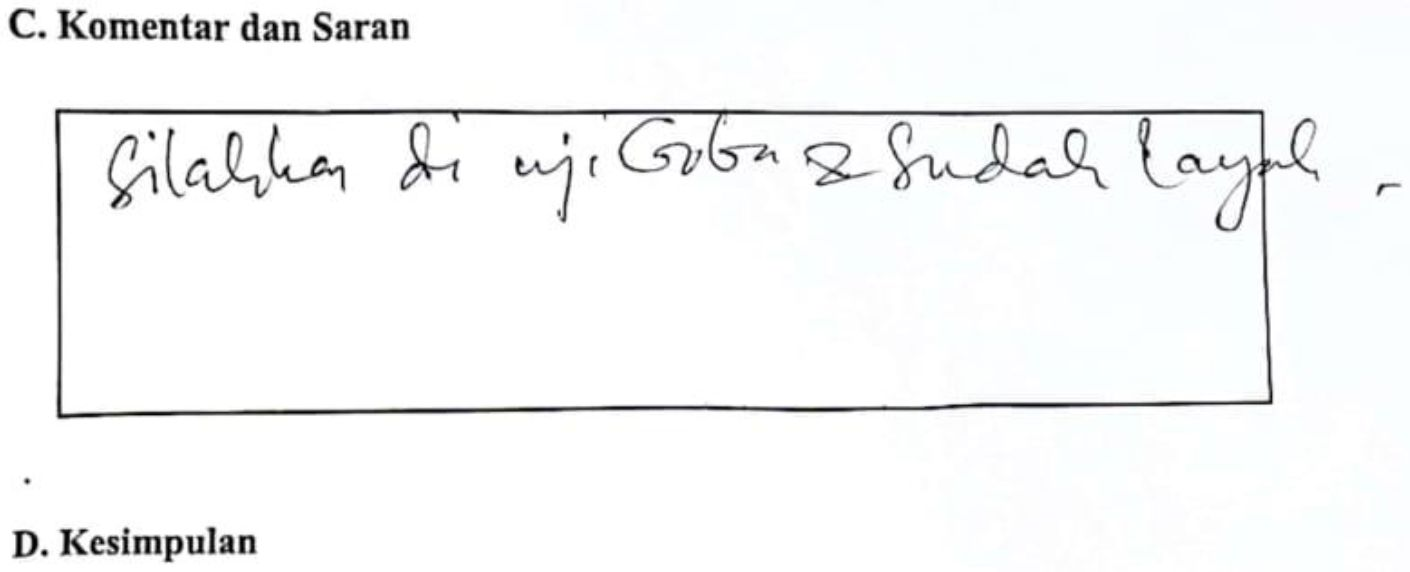 C. Komentar dan Saran
Silahkan di uji Coba & Sudah layak.
.
D. Kesimpulan